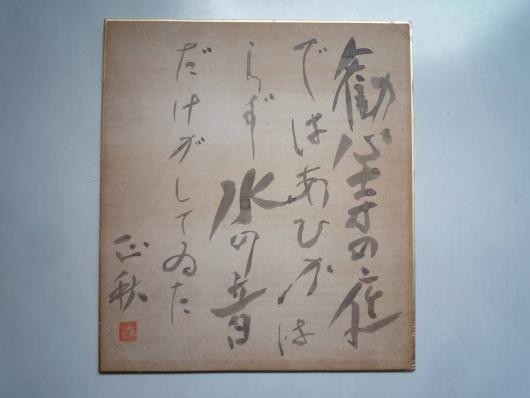 勧心寺の庭
ではあひかは
らず水の音
だけがしてゐた
正秋